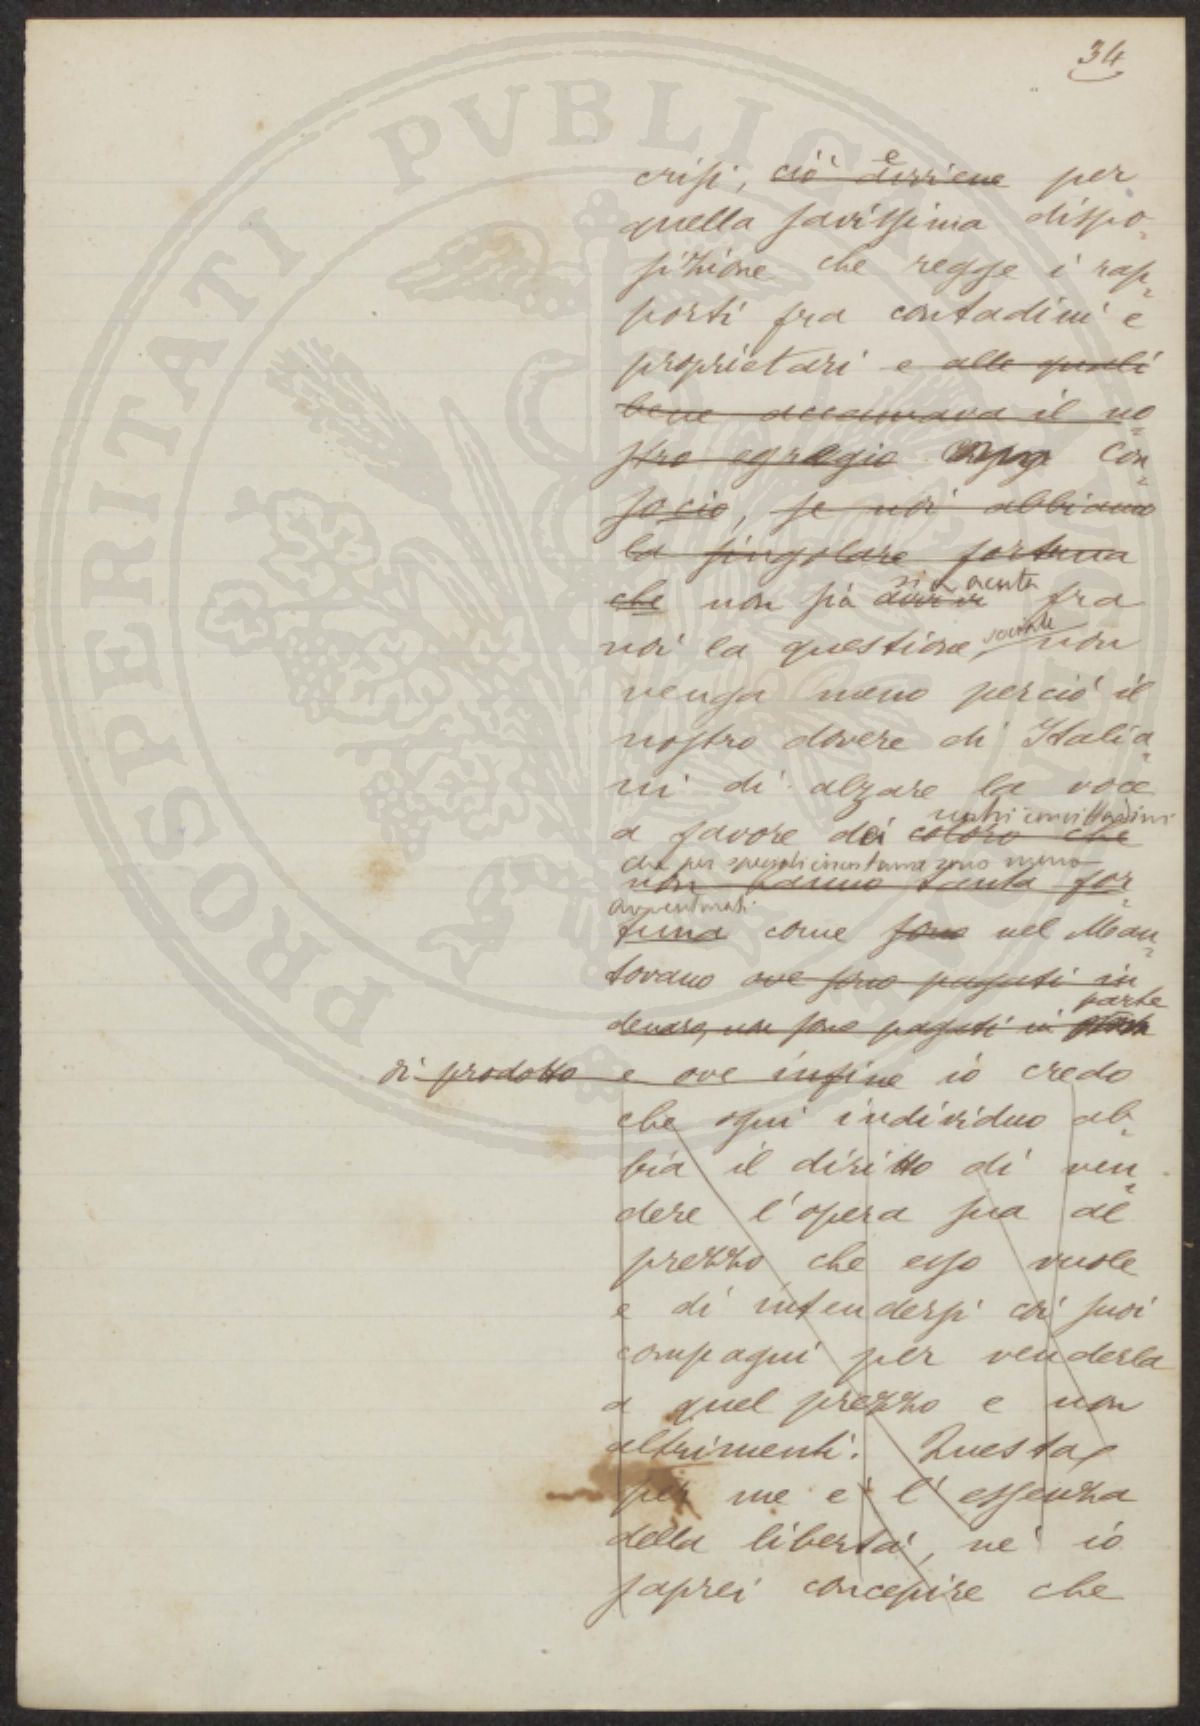 34
crisi, ciò avviene e per
quella savissima dispo-
sizione che regge i rap-
porti fra contadini e
proprietari e alle quali
bene accennava il no-
stro egregio Con-
socio, se noi abbiamo
la singolare fortuna
che non sia sia acuta fra
noi la questione sociale non
venga meno perciò il
nostro dovere di Italia-
ni di alzare la voce
a favore dei coloro che nostri concittadini
che per speciali circostanze sono meno
non hanno tanta for-
avventurati
tuna come sono nel Man-
tovano ove sono pagati in
denaro, non sono pagati in parte
di prodotto e ove infine io credo
che ogni individuo ab-
bia il diritto di ven-
dere l'opera sua al
prezzo che esso vuole
e di intendersi coi suoi
compagni per venderla
a quel prezzo e non
altrimenti. Questa
per me è l'essenza
della libertà, nè io
saprei concepire che
PROSPERITATI PVBLICAE